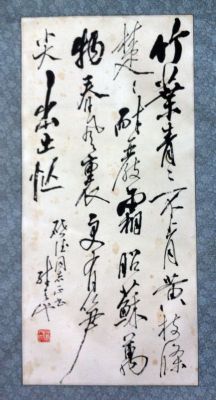 竹葉青々不肯黄枝條
楚々耐嚴霜昭蘇萬
物春風裏更有笋
尖出土忙
同志